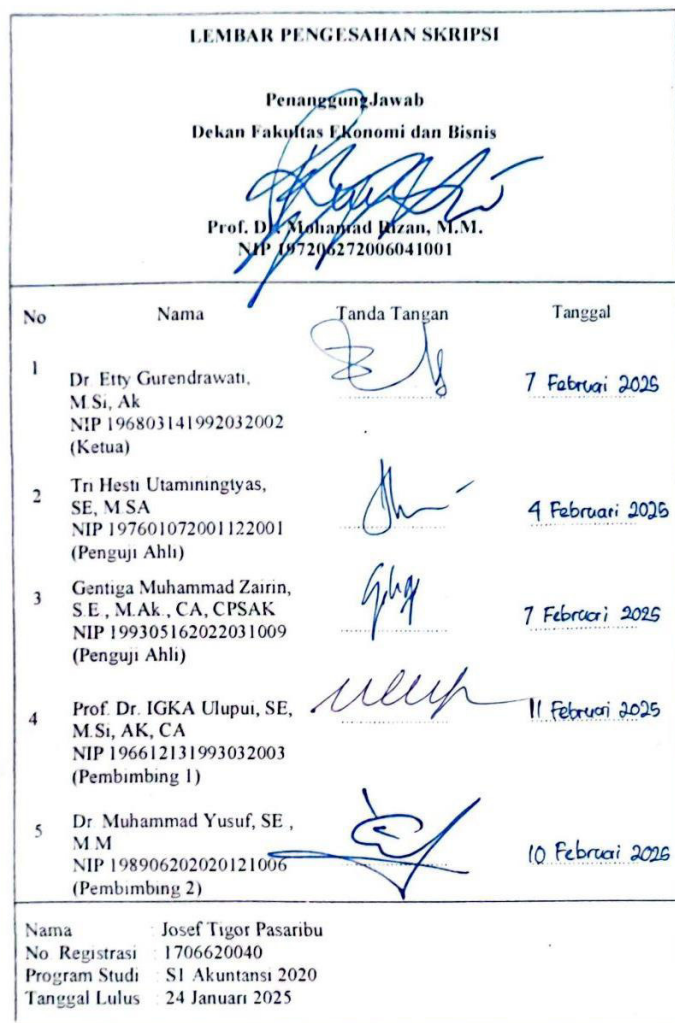 LEMBAR PENGESAHAN SKRIPSI
Penanggung Jawab
Dekan Fakultas Ekonomi dan Bisnis
Prof. Dr. Mohamad Rizan, M.M.
NIP 197206272006041001
No Nama Tanda Tangan Tanggal
1
Dr Etty Gurendrawati,
M.Si, Ak
NIP 196803141992032002
(Ketua)
7 Februari 2025
2
Tri Hesti Utaminingtyas,
SE, M.SA
NIP 197601072001122001
(Penguji Ahli)
4 Februari 2025
3
Gentiga Muhammad Zairin,
S.E., M.Ak., CA, CPSAK
NIP 199305162022031009
(Penguji Ahli)
7 Februari 2025
4
Prof. Dr. IGKA Ulupui, SE,
M.Si, AK, CA
NIP 196612131993032003
(Pembimbing 1)
11 Februari 2025
5
Dr Muhammad Yusuf, SE.,
M.M
NIP 198906202020121006
(Pembimbing 2)
10 Februari 2025
Nama : Josef Tigor Pasaribu
No Registrasi : 1706620040
Program Studi : S1 Akuntansi 2020
Tanggal Lulus : 24 Januari 2025